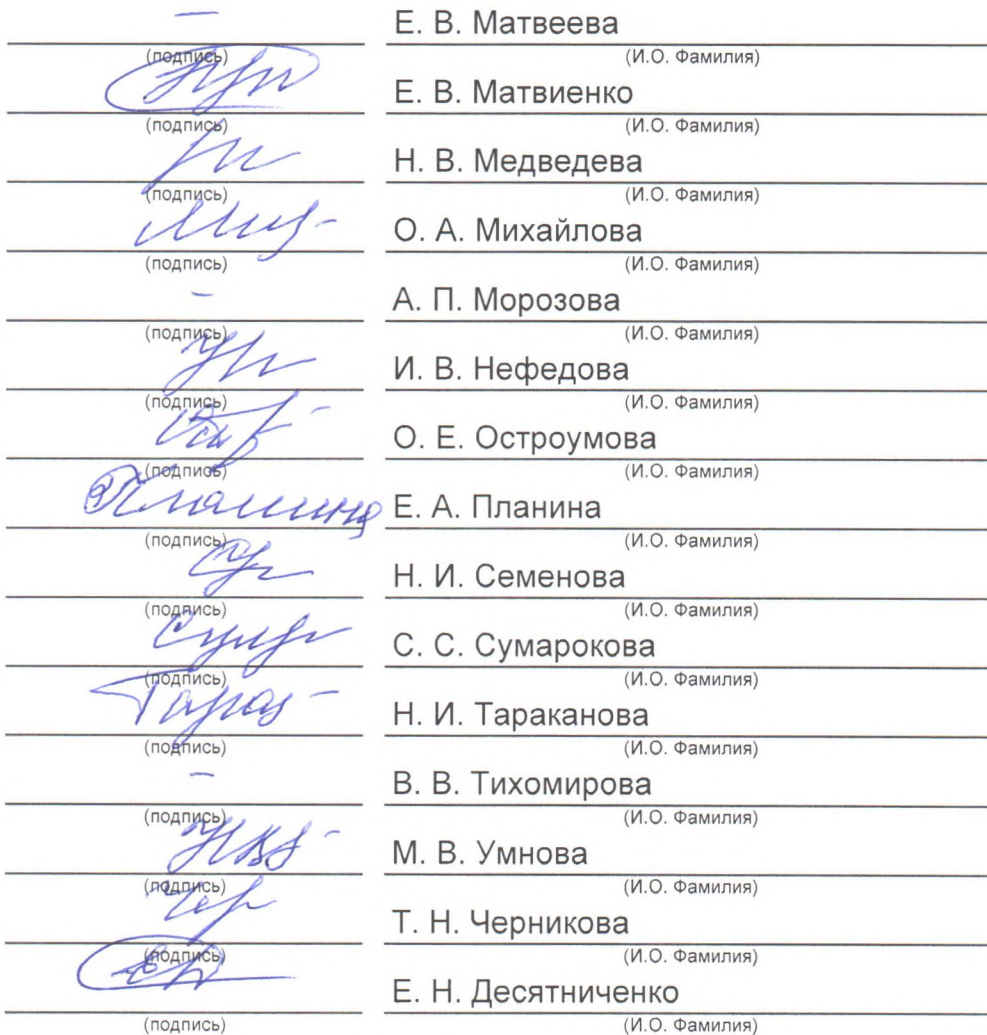 — Е. В. Матвеева
(подпись) (И.О. Фамилия)
Е. В. Матвиенко
(подпись) (И.О. Фамилия)
Н. В. Медведева
(подпись) (И.О. Фамилия)
О. А. Михайлова
(подпись) (И.О. Фамилия)
- А. П. Морозова
(подпись) (И.О. Фамилия)
И. В. Нефедова
(подпись) (И.О. Фамилия)
О. Е. Остроумова
(подпись) (И.О. Фамилия)
Планина Е. А. Планина
(подпись) (И.О. Фамилия)
Н. И. Семенова
(подпись) (И.О. Фамилия)
С. С. Сумарокова
(подпись) (И.О. Фамилия)
Н. И. Тараканова
(подпись) (И.О. Фамилия)
- В. В. Тихомирова
(подпись) (И.О. Фамилия)
М. В. Умнова
(подпись) (И.О. Фамилия)
Т. Н. Черникова
(подпись) (И.О. Фамилия)
Е. Н. Десятниченко
(подпись) (И.О. Фамилия)